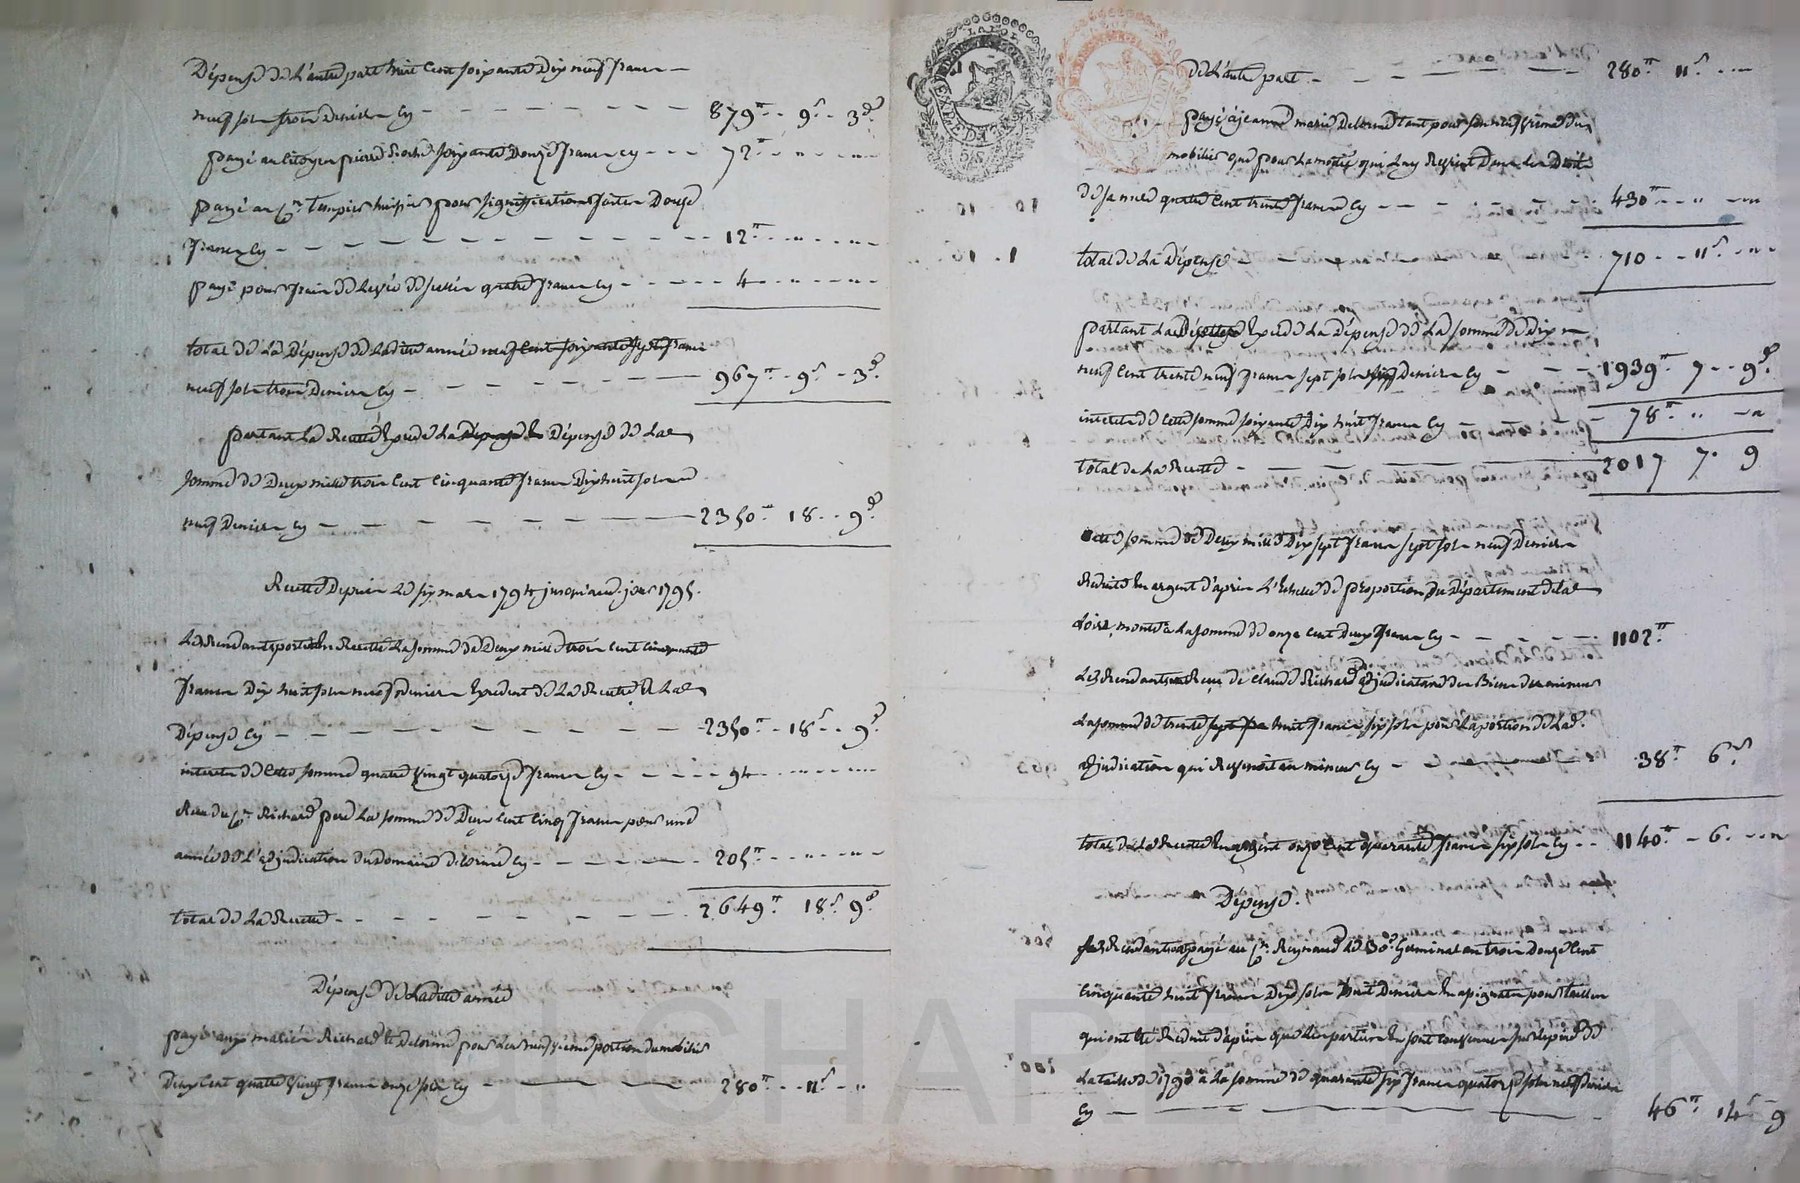 Dépense de l'autre part huit cent soixante dix neuf francs
neuf sols trois deniers cy - - - 879tt - 9s - 3d
payé au citoyen pierre soixante Douze francs cy - - - 72tt - " - "
payé au cn tempier huissier pour significations faites Douze
francs cy - - - 12tt - " - "
payé pour frais de levée de quatre francs cy - - - 4 - " - "
total de la Dépense de ladite année neuf cent soixante sept francs
neuf sols trois Deniers cy - - - 967tt - 9s - 3d
partant la Recette Excede la Dépense de la
somme de Deux mille trois cent cinquante francs Dix huit sols
neuf Deniers cy - - - 2350tt 18 - 9d
Recette Depuis le six mars 1794 jusqu'aud. jour 1795.
Les Rendants portent en Recette la somme de Deux mille trois cent cinquante
francs Dix huit sols neuf deniers Excedent de la Recette à la
Dépense cy - - - 2350tt - 18s - 9d
interets de cette somme quatre vingt quatorze francs cy - - - 94 - " - "
Recu du cn Richard pere la somme de Deux cent cinq francs pour une
année de l'adjudication du Domaine delorme cy - - - 205tt - " - "
total de la Recette - - - 2649tt 18s 9d
Dépense de ladite année
payé aux mariés Richard et Delorme pour leur neuvieme portion du mobilier
Deux cent quatre vingt francs onze sols cy - - - 280tt - 11s - "
de l'autre part - - - 280tt 11s - "
payé à jeanne marie Delorme tant pour son neuvieme du
mobilier que pour la moitié qui luy Revient Dans les Droits
de sa mere quatre cent trente francs cy - - - 430tt - " - "
total de la Dépense - - - 710 - 11s - "
partant la Recette Excede la Dépense de la somme de Dix
neuf cent trente neuf francs sept sols neuf Deniers cy - - - 1939tt 7 - 9d
interets de cette somme soixante Dix huit francs cy - - - 78tt " - "
total de la Recette - - - 2017 7 9
Cette somme de Deux mille Dix sept francs sept sols neuf Deniers
Reduite en argent d'après l'Echelle de proportion du Département de la
Loire, monte à la somme de onze cent Deux francs cy - - - 1102tt
Les Rendants ont Recu de Claude Richard adjudicataire des Biens des mineurs
la somme de trente huit francs six sols pour la portion de lad.
adjudication qui Revenoit au mineur cy - - - 38tt 6s
total de la Recette En argent onze cent quarante francs six sols cy - - 1140tt - 6 - "
Dépense.
Les Rendants ont payé au cn Reynaud le 30 Germinal an trois Douze cent
cinquante huit francs Dix sols huit Deniers En assignats pour tailles
qui ont été Reduit d'après que les parties En sont convenues sur le pied de
la taille de 1790 à la somme de quarante six francs quatorze sols neuf deniers
cy - - - 46tt 14s 9